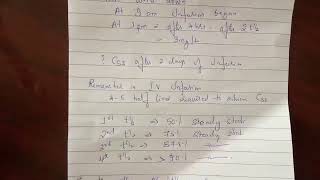 At 9 am Infusion began
At 1 pm = after 4 hrs = after 2 t½
= 3 mg/L
? Css after 2 days of Infusion
Remember in IV Infusion
4-5 half lives required to achieve Css
1st t½ ⇒ 50% steady state
2nd t½ ⇒ 75% steady state
3rd t½ ⇒ 87.5%
4th t½ ⇒ > 90%